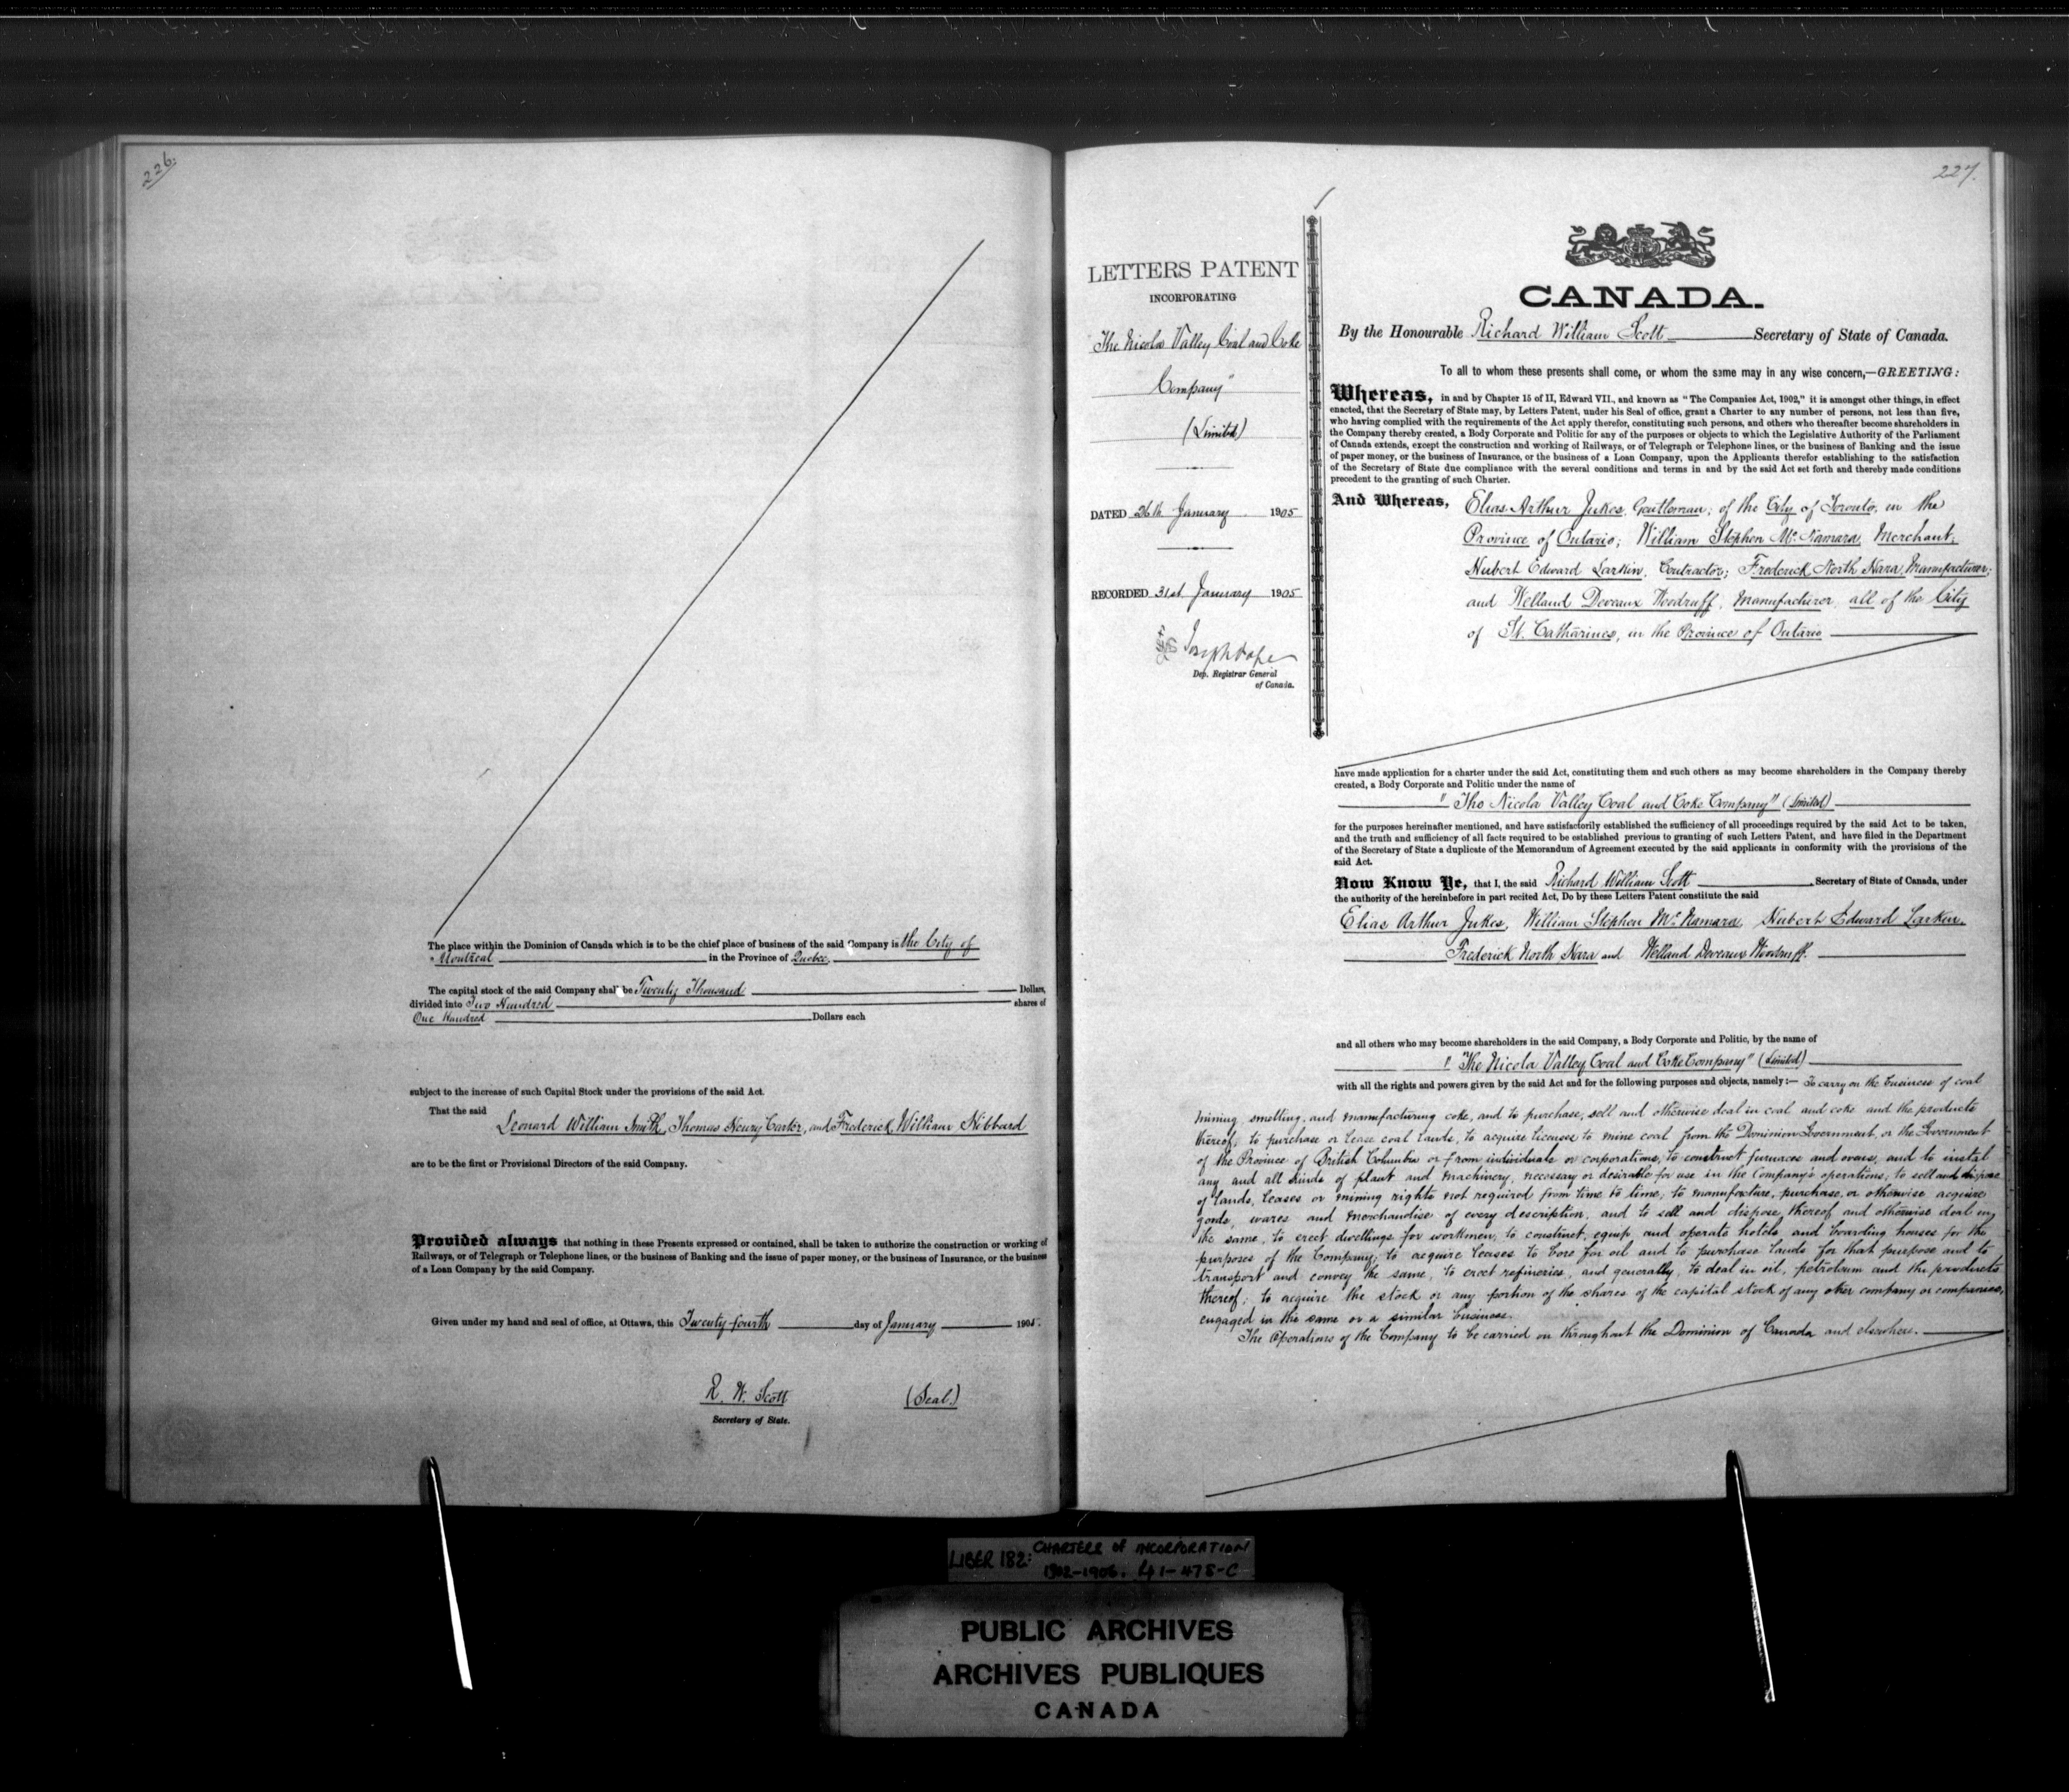 226.
The place within the Dominion of Canada which is to be the chief place of business of the said Company is the City of
Montreal in the Province of Quebec.
The capital stock of the said Company shall be Twenty Thousand Dollars,
divided into Two Hundred shares of
One Hundred Dollars each
subject to the increase of such Capital Stock under the provisions of the said Act.
That the said
Leonard William Smith, Thomas Henry Carter, and Frederick William Hibbard
are to be the first or Provisional Directors of the said Company.
Provided always that nothing in these Presents expressed or contained, shall be taken to authorize the construction or working of
Railways, or of Telegraph or Telephone lines, or the business of Banking and the issue of paper money, or the business of Insurance, or the business
of a Loan Company by the said Company.
Given under my hand and seal of office, at Ottawa, this Twenty-fourth day of January 1905.
R. W. Scott
(Seal)
Secretary of State.
227.
LETTERS PATENT
INCORPORATING
The Nicola Valley Coal and Coke
Company"
(Limited)
DATED 26th January 1905
RECORDED 31st January 1905
Joseph Pope
Dep. Registrar General
of Canada.
CANADA.
By the Honourable Richard William Scott Secretary of State of Canada.
To all to whom these presents shall come, or whom the same may in any wise concern,—GREETING:
Whereas, in and by Chapter 15 of II, Edward VII., and known as "The Companies Act, 1902," it is amongst other things, in effect
enacted, that the Secretary of State may, by Letters Patent, under his Seal of office, grant a Charter to any number of persons, not less than five,
who having complied with the requirements of the Act apply therefor, constituting such persons, and others who thereafter become shareholders in
the Company thereby created, a Body Corporate and Politic for any of the purposes or objects to which the Legislative Authority of the Parliament
of Canada extends, except the construction and working of Railways, or of Telegraph or Telephone lines, or the business of Banking and the issue
of paper money, or the business of Insurance, or the business of a Loan Company, upon the Applicants therefor establishing to the satisfaction
of the Secretary of State due compliance with the several conditions and terms in and by the said Act set forth and thereby made conditions
precedent to the granting of such Charter.
And Whereas, Elias Arthur Jukes, Gentleman; of the City of Toronto, in the
Province of Ontario; William Stephen McNamara, Merchant;
Hubert Edward Larkin, Contractor; Frederick North Nara, Manufacturer;
and Welland Deveaux Woodruff, Manufacturer, all of the City
of St. Catharines, in the Province of Ontario
have made application for a charter under the said Act, constituting them and such others as may become shareholders in the Company thereby
created, a Body Corporate and Politic under the name of
"The Nicola Valley Coal and Coke Company" (Limited)
for the purposes hereinafter mentioned, and have satisfactorily established the sufficiency of all proceedings required by the said Act to be taken,
and the truth and sufficiency of all facts required to be established previous to granting of such Letters Patent, and have filed in the Department
of the Secretary of State a duplicate of the Memorandum of Agreement executed by the said applicants in conformity with the provisions of the
said Act.
Now Know Ye, that I, the said Richard William Scott Secretary of State of Canada, under
the authority of the hereinbefore in part recited Act, Do by these Letters Patent constitute the said
Elias Arthur Jukes, William Stephen McNamara, Hubert Edward Larkin,
Frederick North Nara and Welland Deveaux Woodruff.
and all others who may become shareholders in the said Company, a Body Corporate and Politic, by the name of
"The Nicola Valley Coal and Coke Company" (Limited)
with all the rights and powers given by the said Act and for the following purposes and objects, namely:— To carry on the business of coal
mining smelting, and manufacturing coke, and to purchase, sell and otherwise deal in coal and coke and the products
thereof; to purchase or lease coal lands, to acquire licenses to mine coal from the Dominion Government, or the Government
of the Province of British Columbia or from individuals or corporations, to construct furnaces and ovens, and to instal
any and all kinds of plant and machinery, necessary or desirable for use in the Company's operations, to sell and dispose
of lands, leases or mining rights not required from time to time; to manufacture, purchase, or otherwise acquire
goods, wares and merchandise of every description, and to sell and dispose thereof and otherwise deal in
the same, to erect dwellings for workmen, to construct, equip and operate hotels and boarding houses for the
purposes of the Company; to acquire leases to bore for oil and to purchase lands for that purpose and to
transport and convey the same, to erect refineries, and generally, to deal in oil, petroleum and the products
thereof; to acquire the stock or any portion of the shares of the capital stock of any other company or companies,
engaged in the same or a similar business.
The Operations of the Company to be carried on throughout the Dominion of Canada and elsewhere.
LIBER 182: CHARTERS of INCORPORATION
1902-1906. 41-478-C
PUBLIC ARCHIVES
ARCHIVES PUBLIQUES
CANADA